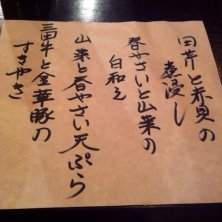 田芹と赤貝の
煮浸し
春やさいと山菜の
白和え
山菜と春やさい天ぷら
三田牛と金華豚の
すきやき